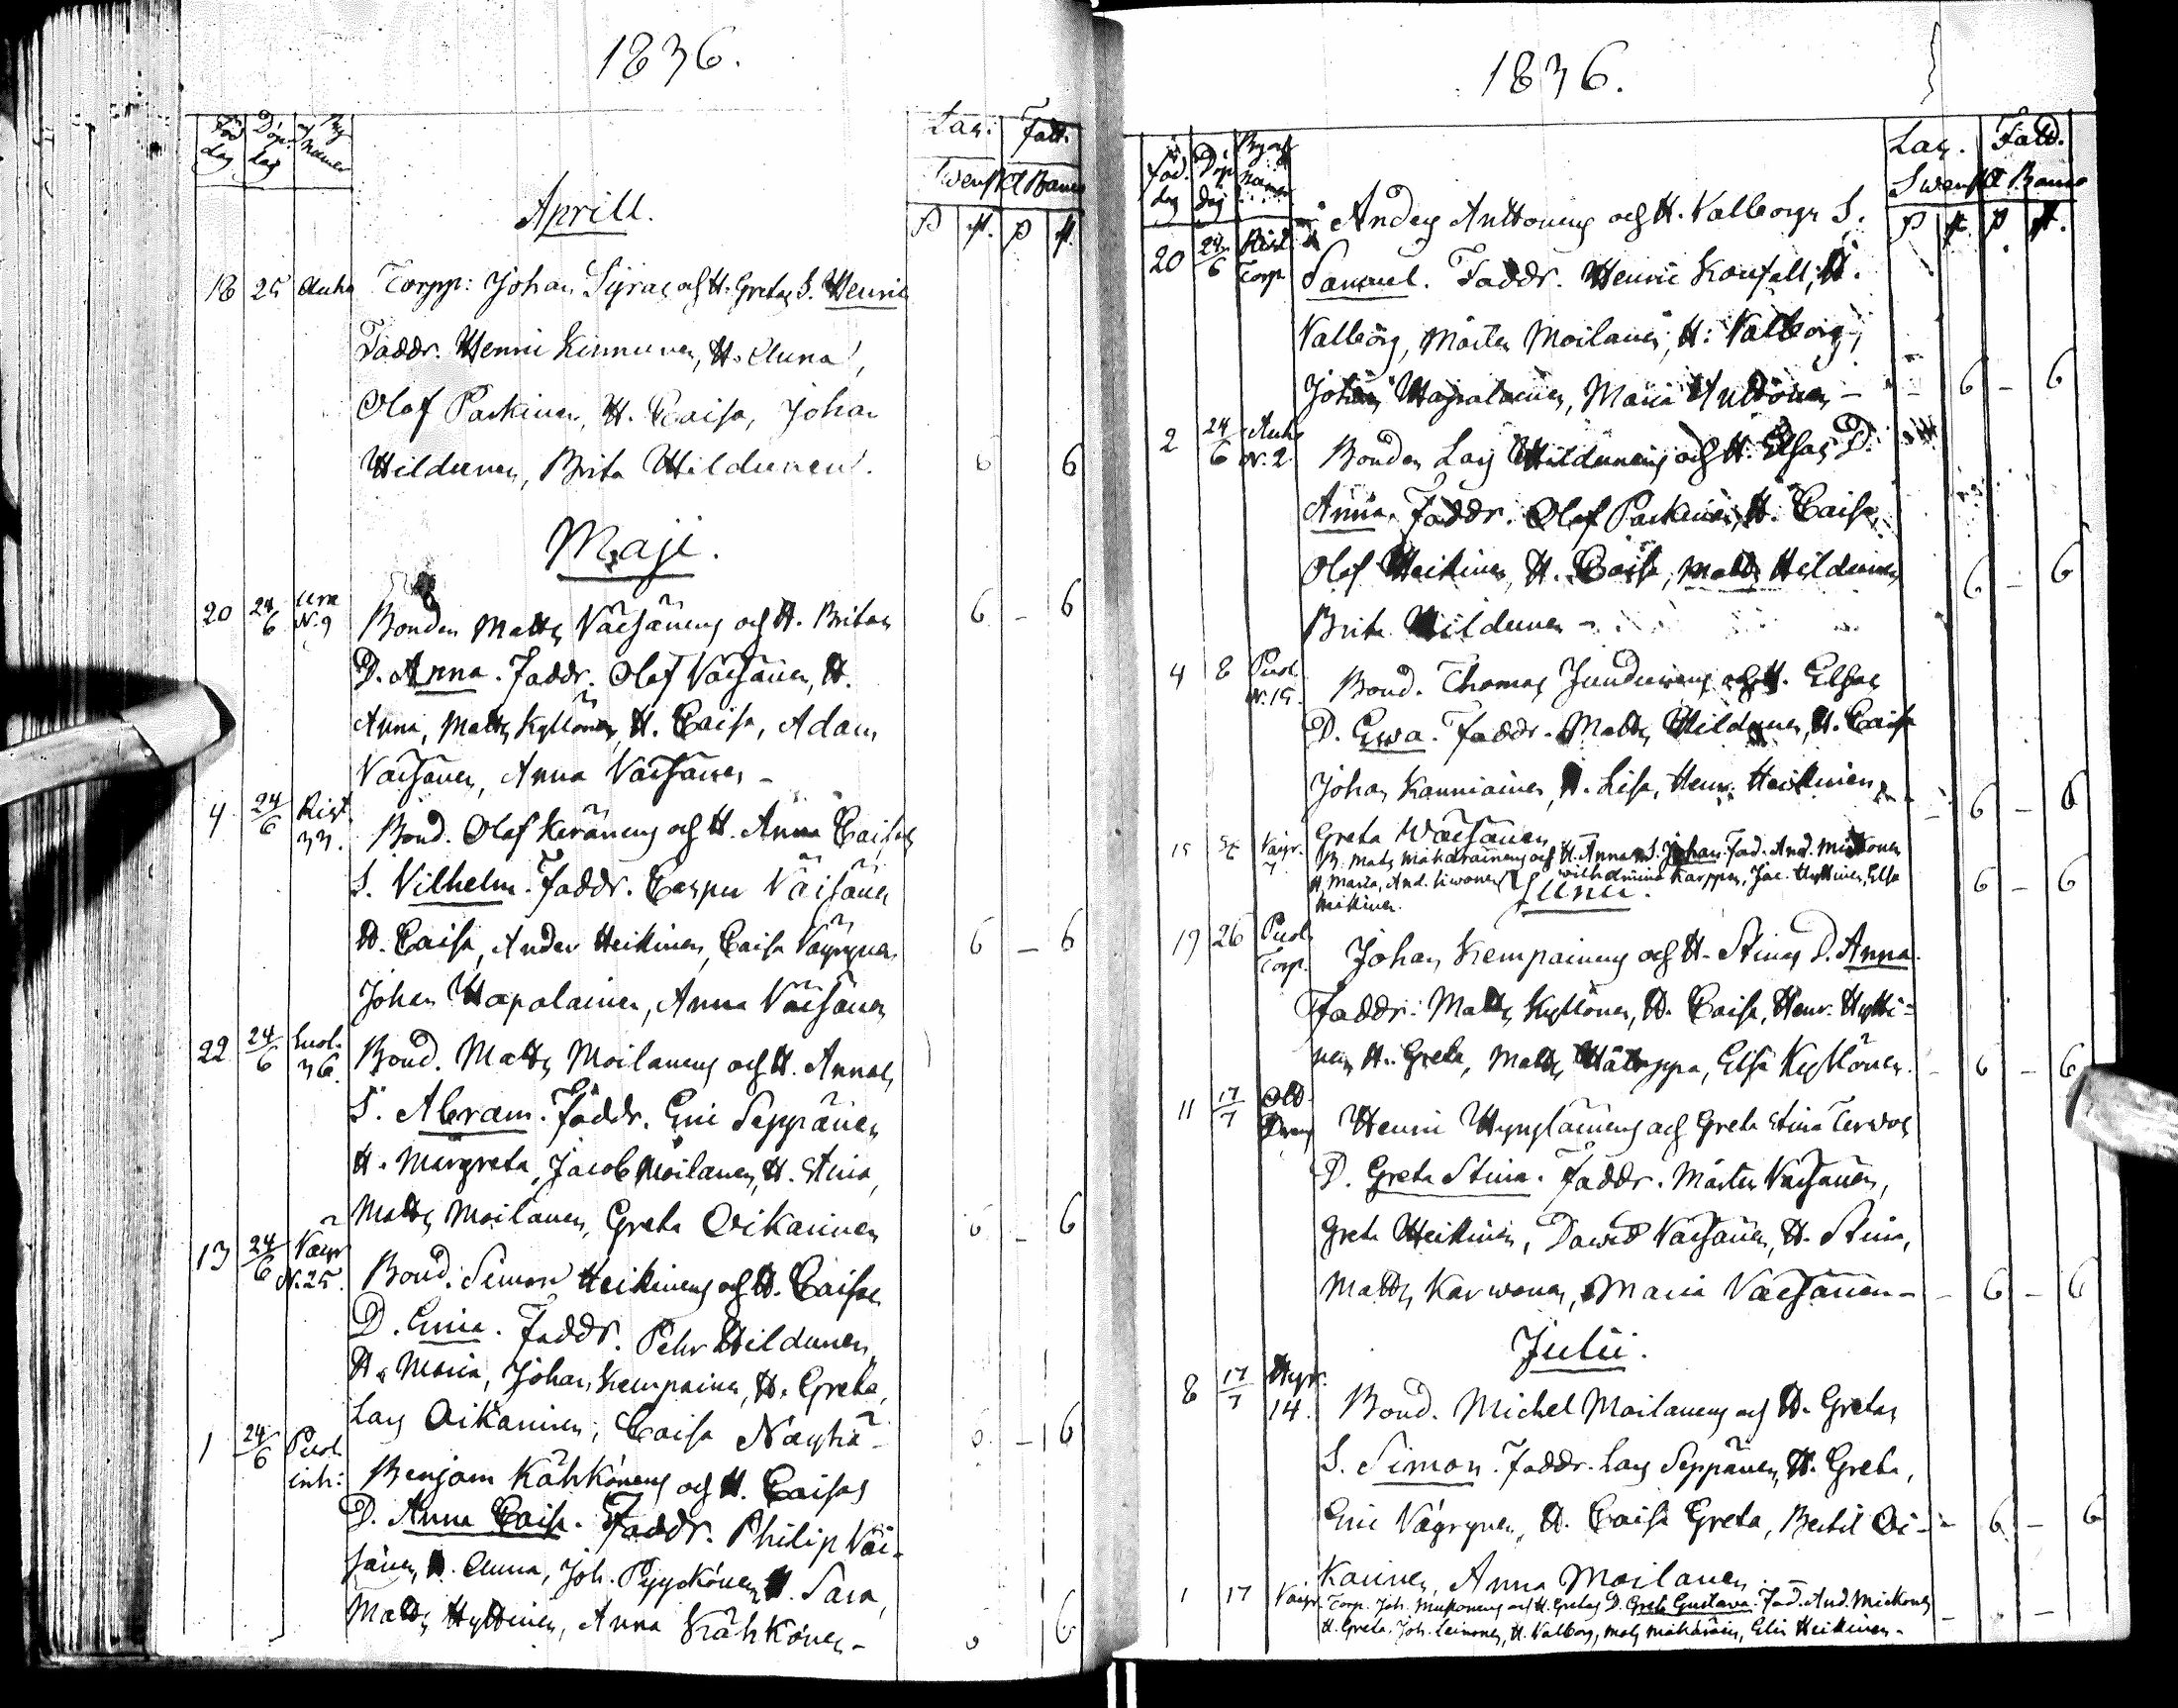 1836.
Föd dag Döp. dag Bynamn
Lar. Fatt.
Swenskt Banco
Aprill.
18 25 Torpp: Johan Syrac och H. Gretas S. Henric
Faddr. Henric Kinnunen, H. Anna,
Olof Parkinen, H. Caisa, Johan
Hildunen, Brita Hildunen. 6 6
Maji.
20 24/6 N. 9 Bonden Matts Väisänens och H. Britas 6 – 6
D. Anna. Faddr. Olof Väisänen, H.
Anna, Matts Kyllönen, H. Caisa, Adam
Väisänen, Anna Väisänen –
4 24/6 Rist. 33. Bond. Olof Keränens och H. Anna Caisas
S. Vilhelm. Faddr. Casper Väisänen
H. Caisa, Anders Heikinen, Caisa Väyrynen 6 – 6
Johan Hapalainen, Anna Väisänen
22 24/6 36. Bond. Matts Moilanens och H. Annas
S. Abram. Faddr. Eric Seppänen
H. Margreta, Jacob Moilanen, H. Stina,
Matts Moilanen, Greta Oikarinen 6 – 6
13 24/6 Väyr N. 25. Bond. Simon Heikinens och H. Caisas
D. Faddr. Pehr Hildunen,
H. Maria, Johan Kempainen, H. Greta,
Lars Oikarinen, Caisa – 6
1 24/6 Puol. inh: Benjam Kähkönens och H. Caisas
D. Anna Caisa. Faddr. Philip Väi-
sänen, H. Anna, Joh. Pyykönen H. Sara,
Matts Hyttinen, Anna Kähkönen – 6
1836.
Föd. dag Döp dag By och namn
Lar. Fatt.
Swenskt Banco
20 24/6 Rist Torp. Anders Anttonens och H. Valborgs S.
Samuel. Faddr. Henric H.
Valborg, Mårten Moilanen, H. Valborg,
Johan Hapalainen, Maria Anttonen – 6 – 6
2 24/6 N. 2 Bonden Lars Hildunens och H. Elsas D.
Anna. Faddr. Olof Parkinen, H. Caisa,
Olof Heikinen, H. Caisa, Matts Hildunen 6 – 6
Brita Hildunen –
4 8 Puol. N. 15. Bond. Thomas Jundunens och H. Elsas
D. Ewa. Faddr. Matts Hildunen, H. Caisa
Johan Kanniainen, H. Lisa, Henr. Heikinen – 6 – 6
Greta Wäisänen
15 Väyr. 7 B. Mats Makaräinens och H. Annas S. Johan. Fad. And. Mickonen
H. Maria, And. Wilhelmina Karppinen, Jac. Hyttinen, Elsa 6 – 6
Heikinen.
Junii.
19 26 Puol. Torp. Johan Kempainens och H. Stinas D. Anna.
Faddr: Matts Kyllönen, H. Caisa, Henr. Hytti=
nen H. Greta, Matts Elsa Kyllönen. – 6 – 6
11 17/7 Henric och Greta Stina Tervos
D. Greta Stina. Faddr. Mårten Väisänen,
Greta Heikinen, David Väisänen, H. Stina,
Matts Karwonen, Maria Väisänen – 6 – 6
Julii.
8 17/7 14. Bond. Michel Moilanens och H. Gretas
S. Simon. Faddr. Lars Seppänen, H. Greta,
Eric Vägrynen, H. Caisa Greta, Bertil Oi– 6 – 6
Karinen, Anna Moilanen.
1 17 Väyr. Torp. Joh. och H. Gretas D. Greta Gustava. Fad. And. Mickonen
H. Greta, Joh. Leinonen, H. Valborg, Mats Makaräinen, Elin Heikinen –